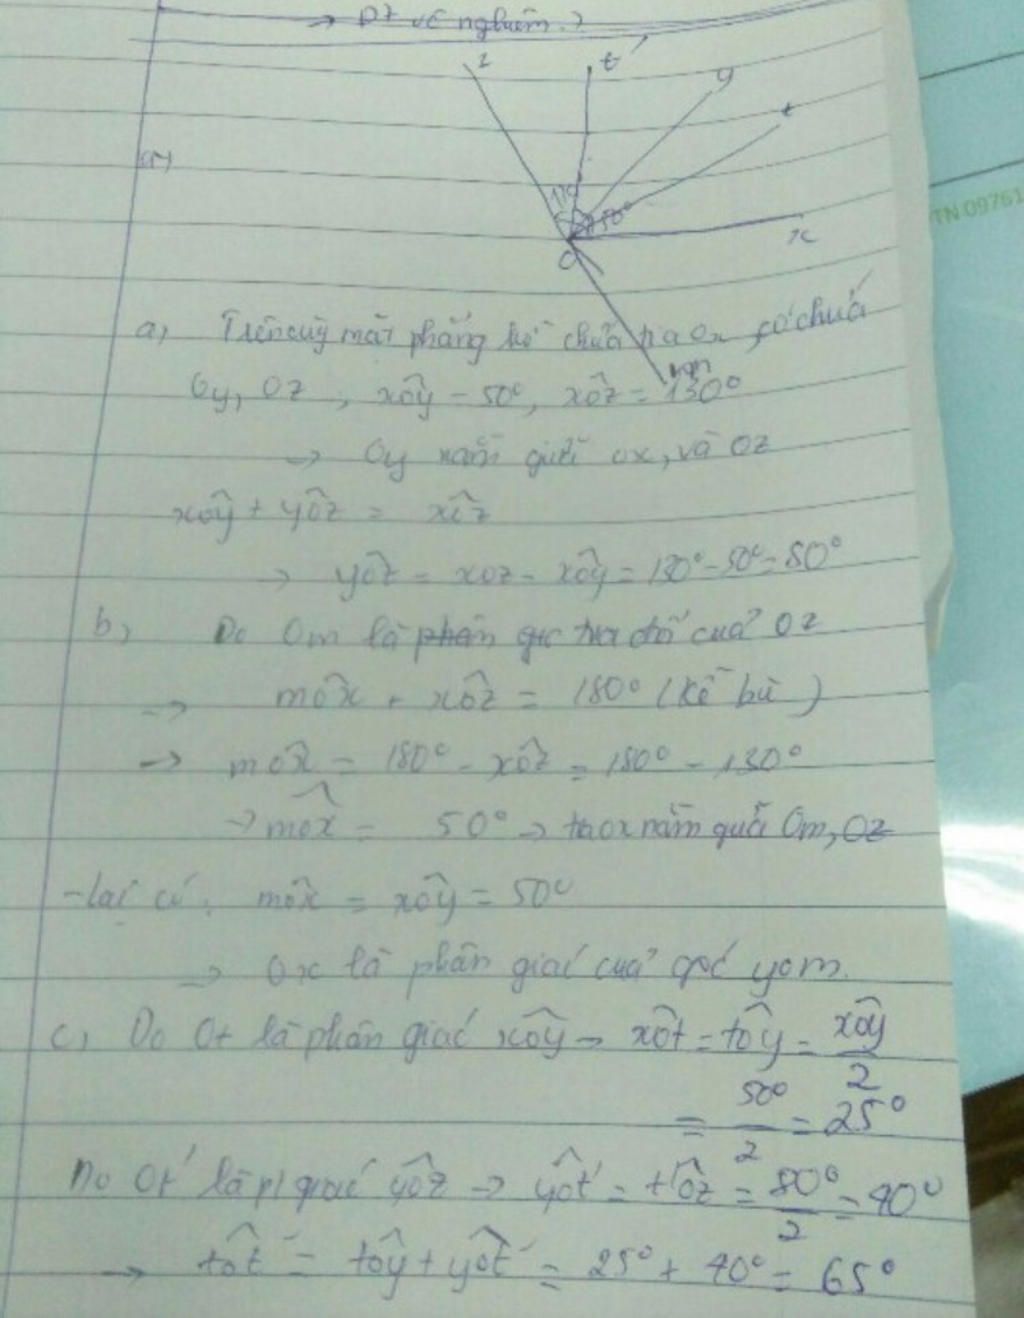 → Pt vô nghiệm.
z t' y t
TN 09761
a)
50°
O x
m
a) Trên cùng mặt phẳng bờ chứa tia Ox, có chứa
Oy, Oz, xôy = 50°, xôz = 130°
→ Oy nằm giữa Ox, và Oz
xôy + yôz = xôz
→ yôz = xoz - xôy = 130° - 50° = 80°
b) Do Om là tia đối của Oz
→ môx + xôz = 180° (kề bù)
→ môx = 180° - xôz = 180° - 130°
→ môx = 50° → tia ox nằm giữa Om, Oz
- lại có: môx = xôy = 50°
→ Ox là phân giác của góc yom.
c) Do Ot là phân giác xôy → xôt = tôy = xôy/2
= 50°/2 = 25°
Do Ot' là p/giác yôz → yôt' = t'ôz = 80°/2 = 40°
→ tôt' = tôy + yôt' = 25° + 40° = 65°